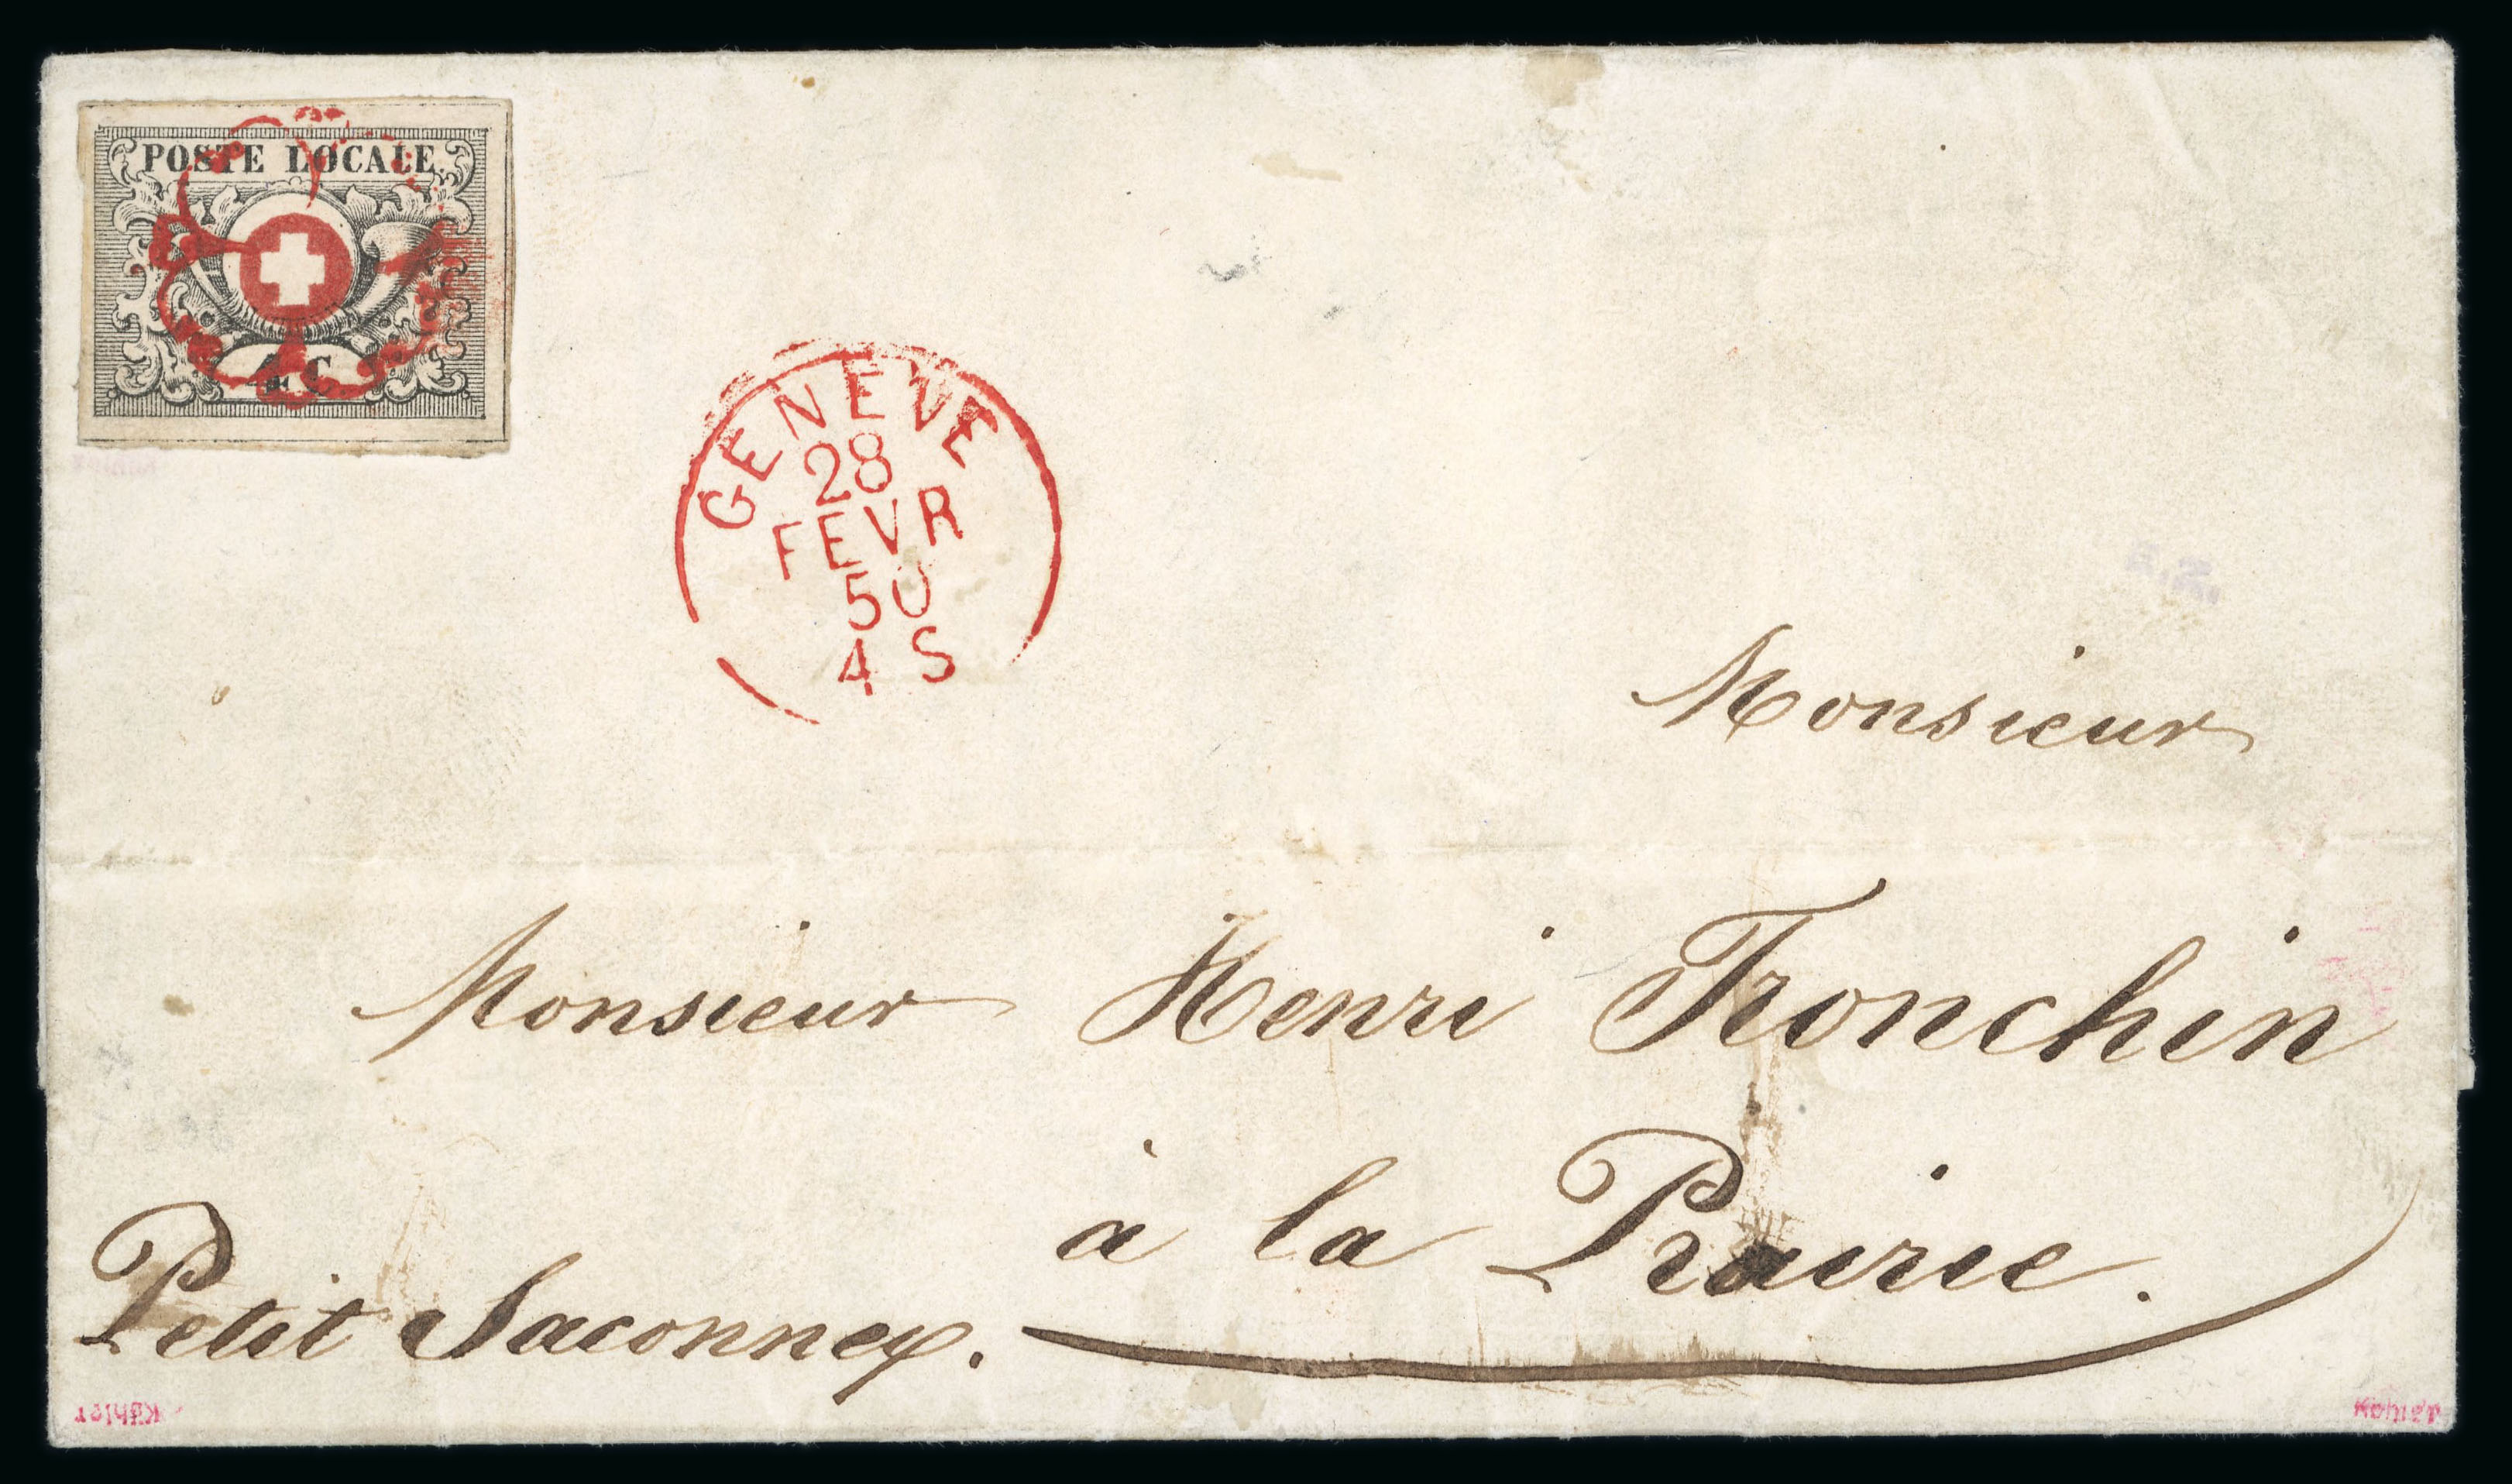 POSTE LOCALE
4 C
GENEVE
28
FEVR
50
4 S
Monsieur
Monsieur Henri Tronchin
à la Prairie.
Petit Saconnex.
Köhler
Köhler